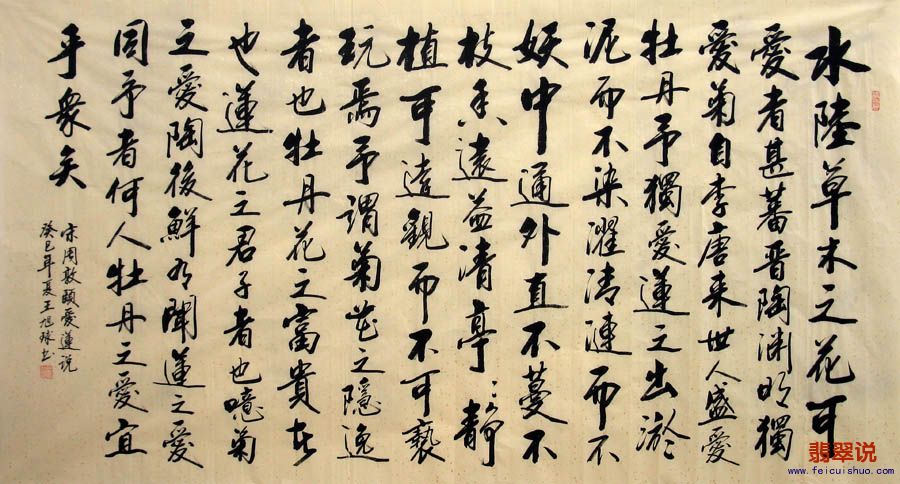 水陸草木之花可
愛者甚蕃晋陶渊明獨
愛菊自李唐来世人盛愛
牡丹予獨愛蓮之出淤
泥而不染濯清漣而不
妖中通外直不蔓不
枝香遠益清亭〻静
植可遠觀而不可褻
玩焉予謂菊花之隱逸
者也牡丹花之富貴者
也蓮花之君子者也噫菊
之愛陶後鮮有聞蓮之愛
同予者何人牡丹之愛宜
乎衆矣
宋周敦頤愛蓮说
癸巳年夏王旭球书
翡翠说
www.feicuishuo.com